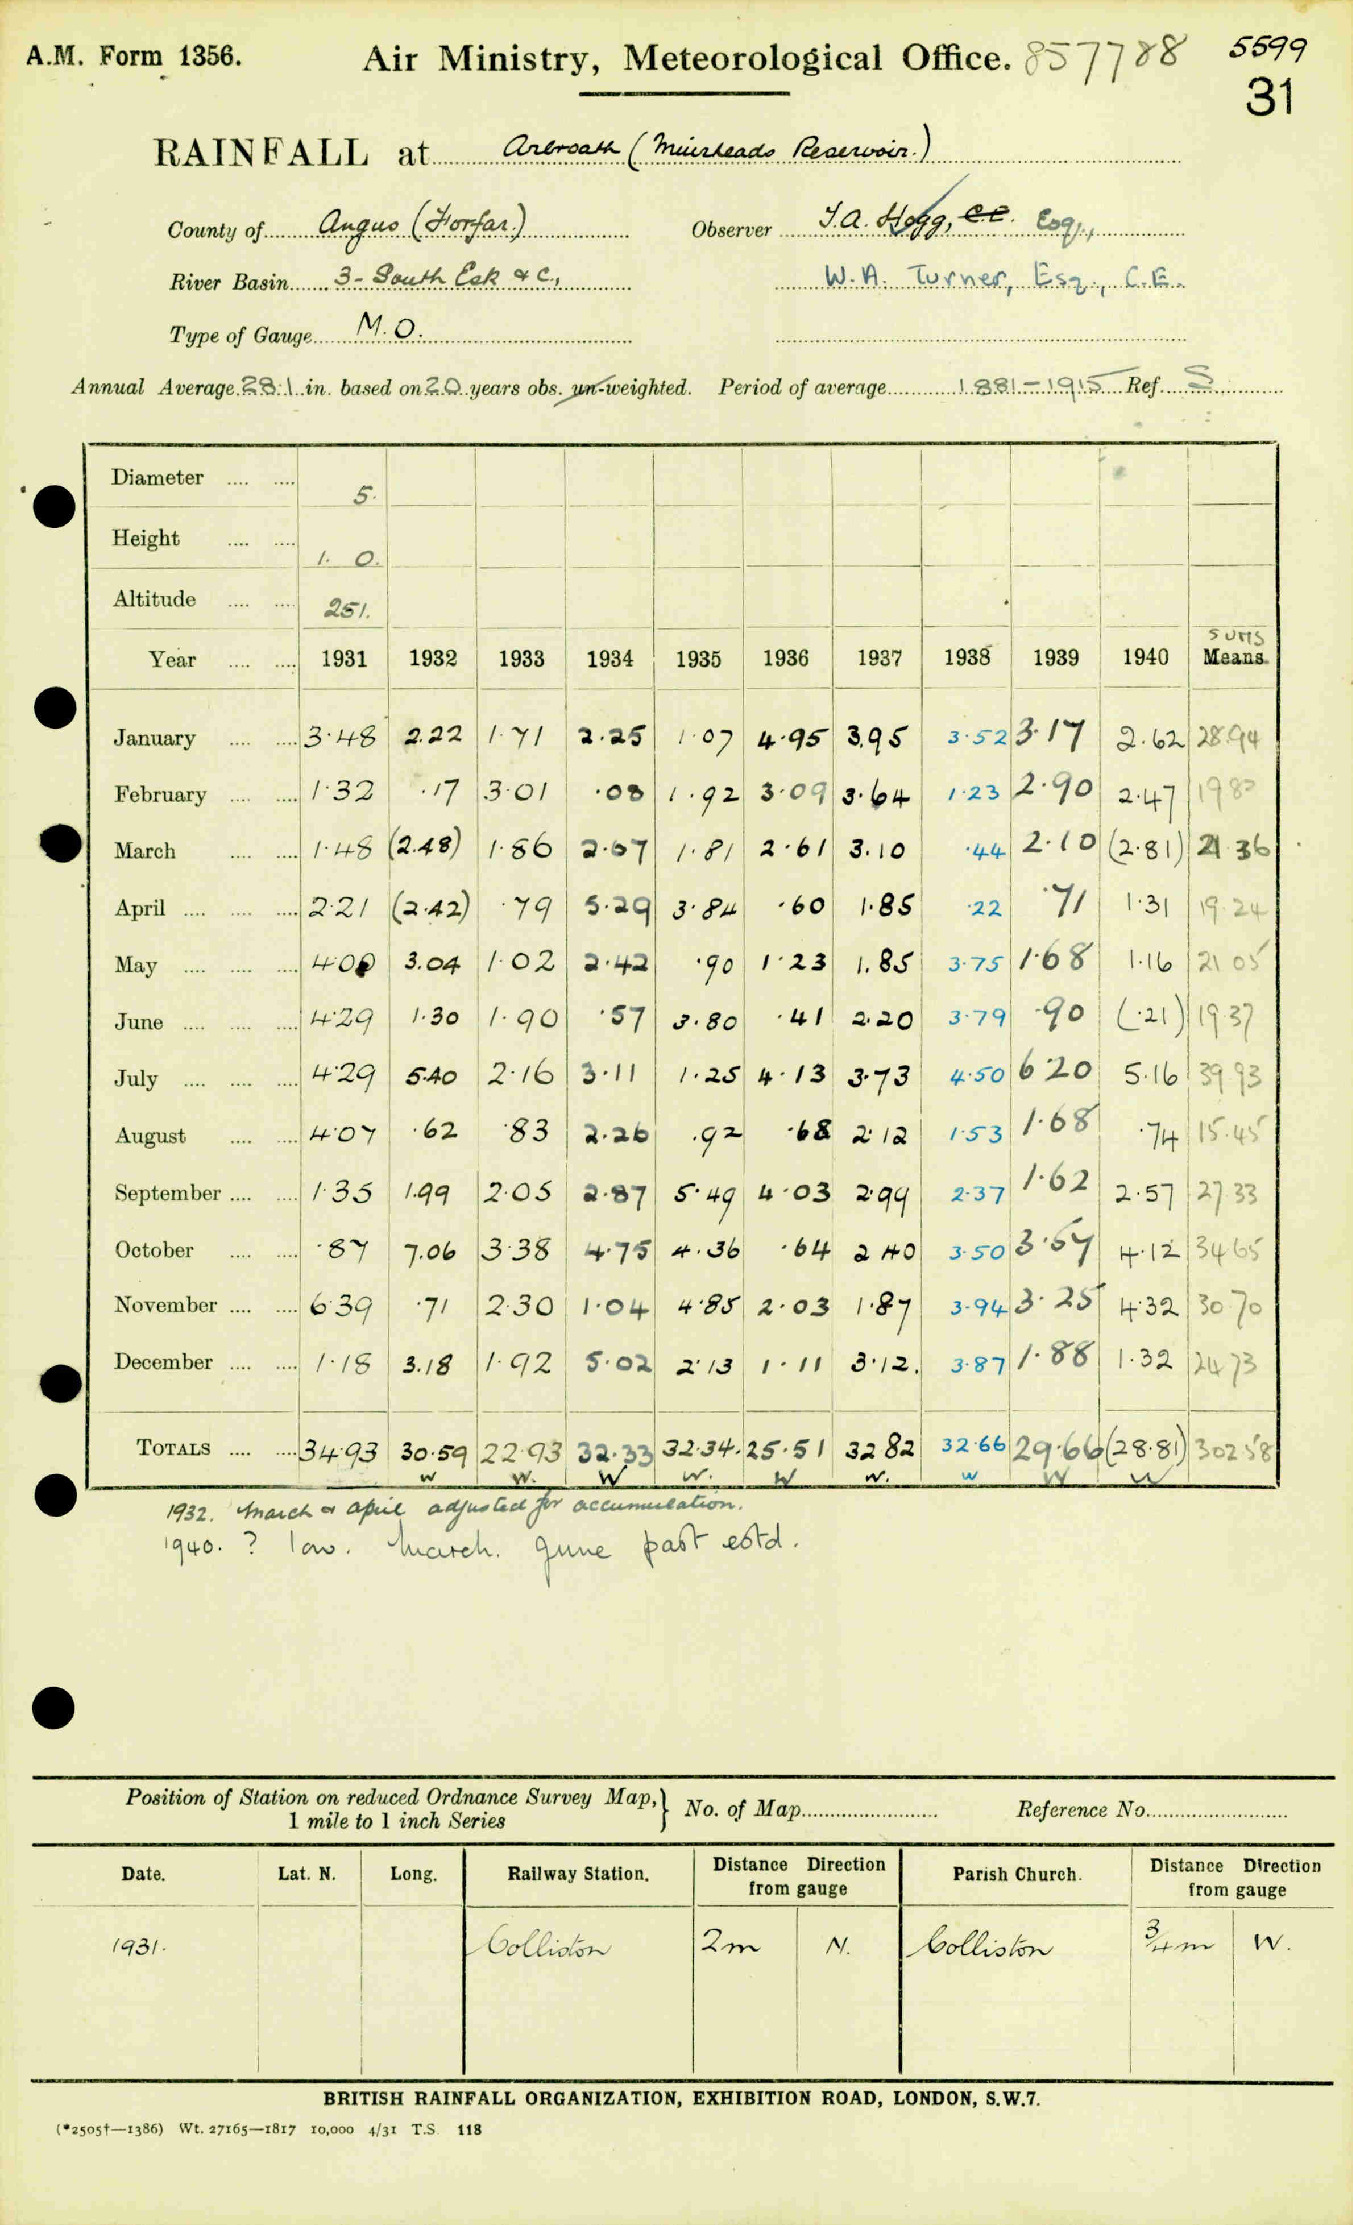 A.M. Form 1356.
Air Ministry, Meteorological Office. 857788
5599
31
RAINFALL at Arbroath (Muirheads Reservoir.)
County of Angus (Forfar.) Observer T.A. Hogg, C.E. Esq.,
River Basin 3 - South Esk & c., W.A. Turner, Esq., C.E.
Type of Gauge M.O.
Annual Average 28.1 in. based on 20 years obs. un-weighted. Period of average 1881-1915 Ref. S
Diameter 5.
Height 1. 0.
Altitude 251.
SUMS
Year 1931 1932 1933 1934 1935 1936 1937 1938 1939 1940 Means
January 3.48 2.22 1.71 2.25 1.07 4.95 3.95 3.52 3.17 2.62 28.94
February 1.32 .17 3.01 .08 1.92 3.09 3.64 1.23 2.90 2.47 19.83
March 1.48 (2.48) 1.86 2.67 1.81 2.61 3.10 .44 2.10 (2.81) 21.36
April 2.21 (2.42) .79 5.29 3.84 .60 1.85 .22 .71 1.31 19.24
May 4.00 3.04 1.02 2.42 .90 1.23 1.85 3.75 1.68 1.16 21 05
June 4.29 1.30 1.90 .57 3.80 .41 2.20 3.79 .90 (.21) 19.37
July 4.29 5.40 2.16 3.11 1.25 4.13 3.73 4.50 6.20 5.16 39 93
August 4.07 .62 .83 2.26 .92 .68 2.12 1.53 1.68 .74 15.45
September 1.35 1.99 2.05 2.87 5.49 4.03 2.99 2.37 1.62 2.57 27 33
October .87 7.06 3.38 4.75 4.36 .64 2.40 3.50 3.57 4.12 34 65
November 6.39 .71 2.30 1.04 4.85 2.03 1.87 3.94 3.25 4.32 30 70
December 1.18 3.18 1.92 5.02 2.13 1.11 3.12. 3.87 1.88 1.32 24 73
TOTALS 34.93 30.59 22.93 32.33 32.34. 25.51 32 82 32.66 29.66 (28.81) 302 58
w w. W w. W w. w W W
1932. March & april adjusted for accumulation.
1940. ? low. March. June part estd.
Position of Station on reduced Ordnance Survey Map, } No. of Map Reference No.
1 mile to 1 inch Series
Date. Lat. N. Long. Railway Station. Distance Direction from gauge Parish Church. Distance Direction from gauge
1931. Colliston 2m N. Colliston 3/4 m W.
BRITISH RAINFALL ORGANIZATION, EXHIBITION ROAD, LONDON, S.W.7.
(*2505†—1386) Wt. 27165—1817 10,000 4/31 T.S. 118